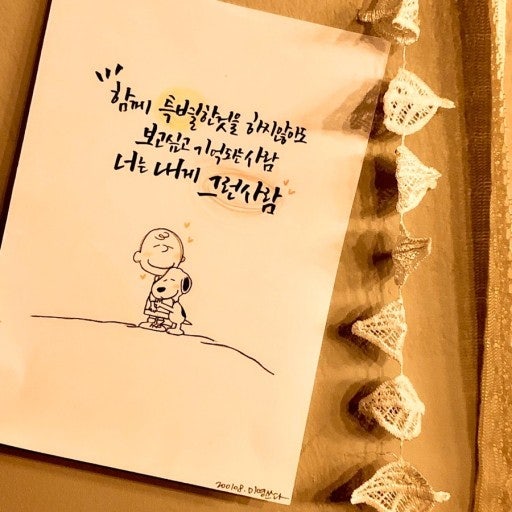 함께 특별한 것을 하지 않아도
보고싶고 기억되는 사람
너는 내게 그런 사람
200108. 미영쓰다